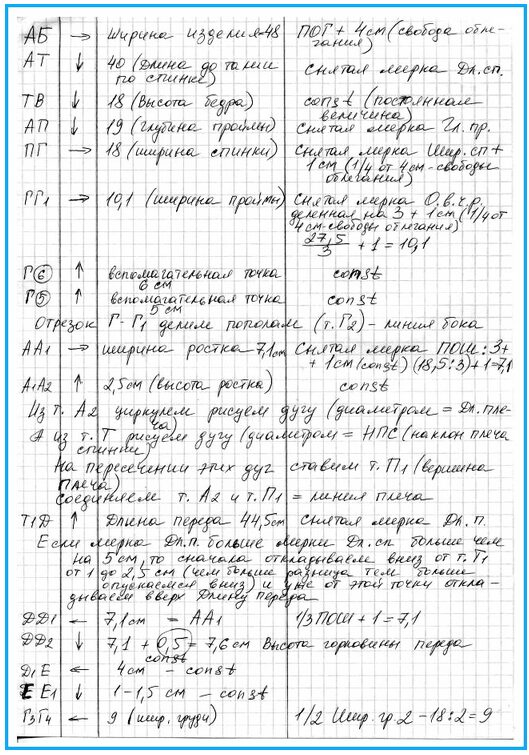 АБ → Ширина изделия-48 ПОГ + 4см (свобода обле-
гания)
АТ ↓ 40 (Длина до талии
по спинке) снятая мерка Дл.сп.
ТВ ↓ 18 (Высота бедра) const (постоянная
величина)
АП ↓ 19 (глубина проймы) снятая мерка Гл. пр.
ПГ → 18 (ширина спинки) снятая мерка Шир. сп +
1см (1/4 от 4см-свободы
облегания)
ГГ1 → 10,1 (ширина проймы) снятая мерка О.в.ч.р.
деленная на 3 + 1см (1/4 от
4см-свободы облегания)
27,5/3 + 1 = 10,1
Г6 ↑ вспомагательная точка const
6 см
Г5 ↑ вспомагательная точка const
5 см
Отрезок Г-Г1 делим пополам (т.Г2) - линия бока
АА1 → ширина ростка-7,1см Снятая мерка ПОШ:3+
+ 1см (const) (18,5:3)+1=7,1
А1А2 ↑ 2,5см (высота ростка) const
Из т. А2 циркулем рисуем дугу (диаметром = Дл.пле-
ча)
А из т. Т рисуем дугу (диаметром = НПС (наклон плеча
спинки)
На пересечении этих дуг ставим т. П1 (вершина
плеча)
Соединяем т. А2 и т. П1 = линия плеча
Т1Д ↑ Длина переда 44,5см снятая мерка Дл. п.
Если мерка Дл.п. больше мерки Дл. сп больше чем
на 5см, то сначала откладываем вниз от т.Т1
от 1 до 2,5 см (чем больше разница тем больше
опускаемся вниз) и уже от этой точки откла-
дываем вверх Длину переда
ДД1 ← 7,1см = АА1 1/3 ПОШ + 1 = 7,1
ДД2 ↓ 7,1 + 0,5 = 7,6 см Высота горловины переда
const
Д1Е ← 4см - const
Е Е1 ↓ 1-1,5 см - const
Г3Г4 ← 9 (шир. груди) 1/2 Шир. гр.2 - 18:2=9